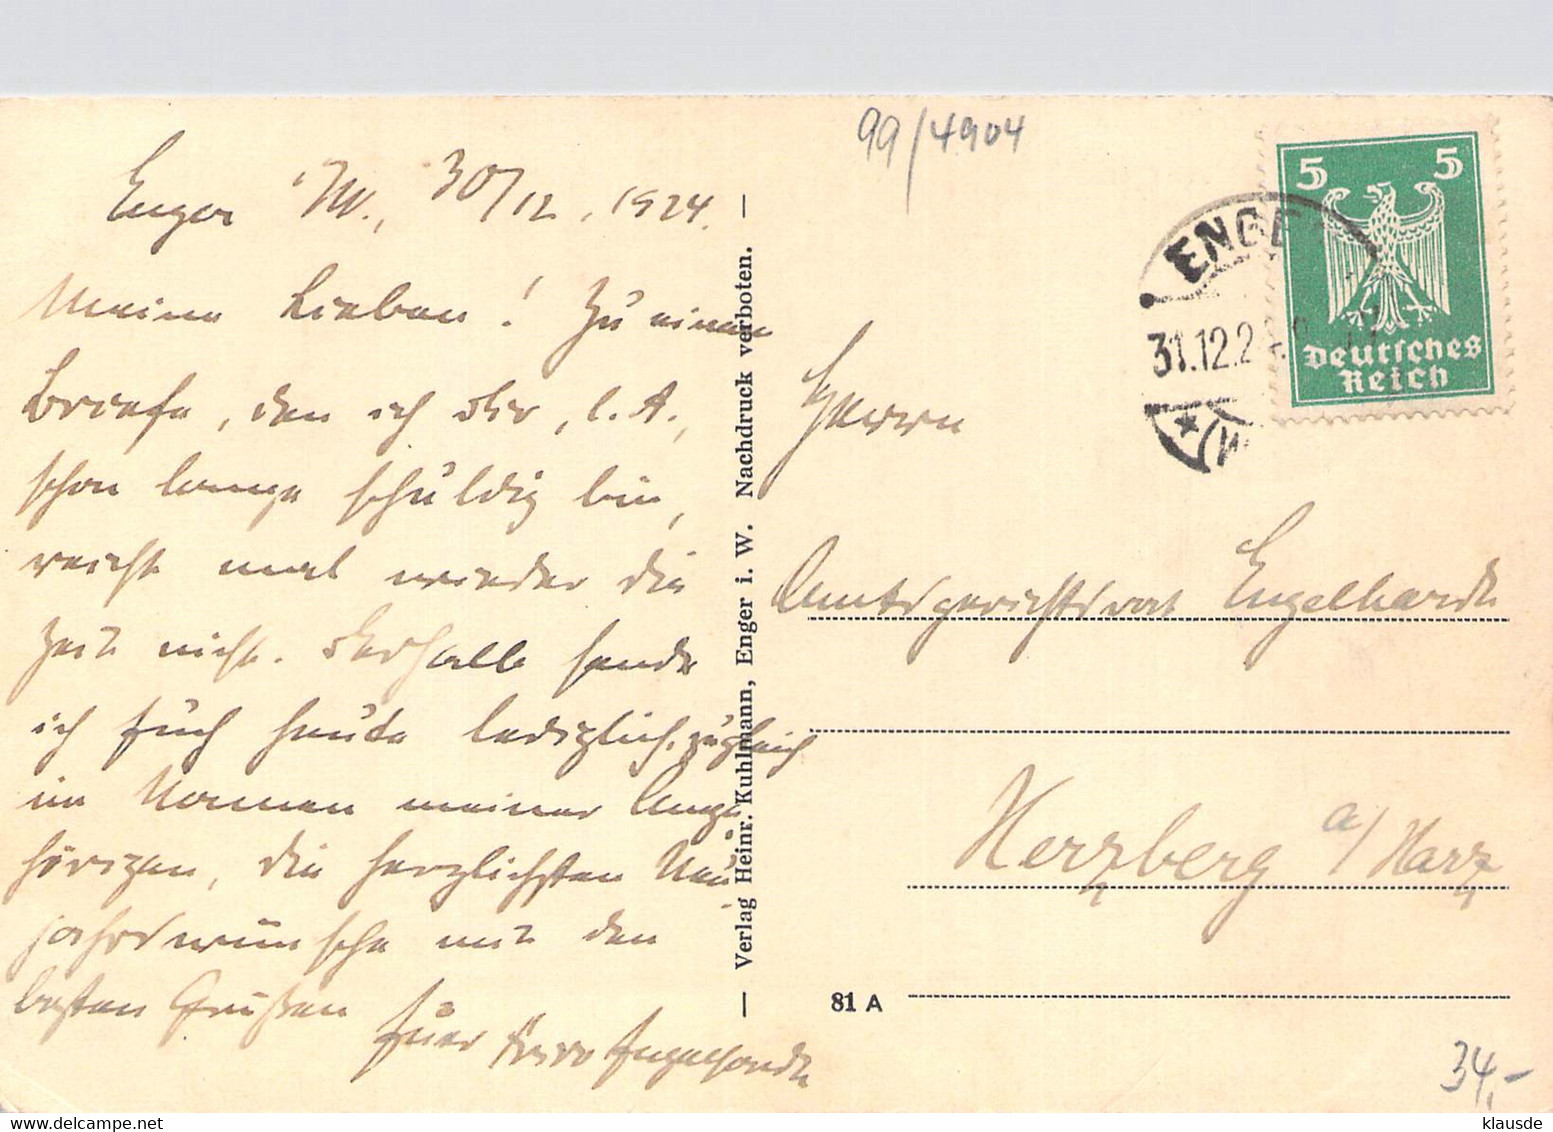 Enger i/W., 30/12. 1924.
Meine Lieben! Zu einem
Briefe, den ich Dir, l. A.,
schon lange schuldig bin,
reicht mal wieder die
Zeit nicht. Deshalb sende
ich Euch heute lediglich, zugleich
im Namen meiner Ange-
hörigen, die herzlichsten Neu-
jahrswünsche mit den
besten Grüßen
Euer Engelhardt
— Verlag Heinr. Kuhlmann, Enger i. W. Nachdruck verboten. —
99/4904
5 5
Deutsches
Reich
ENGE
31.12.2
(W
Herrn
Amtsgerichtsrat Engelhardt
Herzberg a/Harz
81 A
34,-
klausde